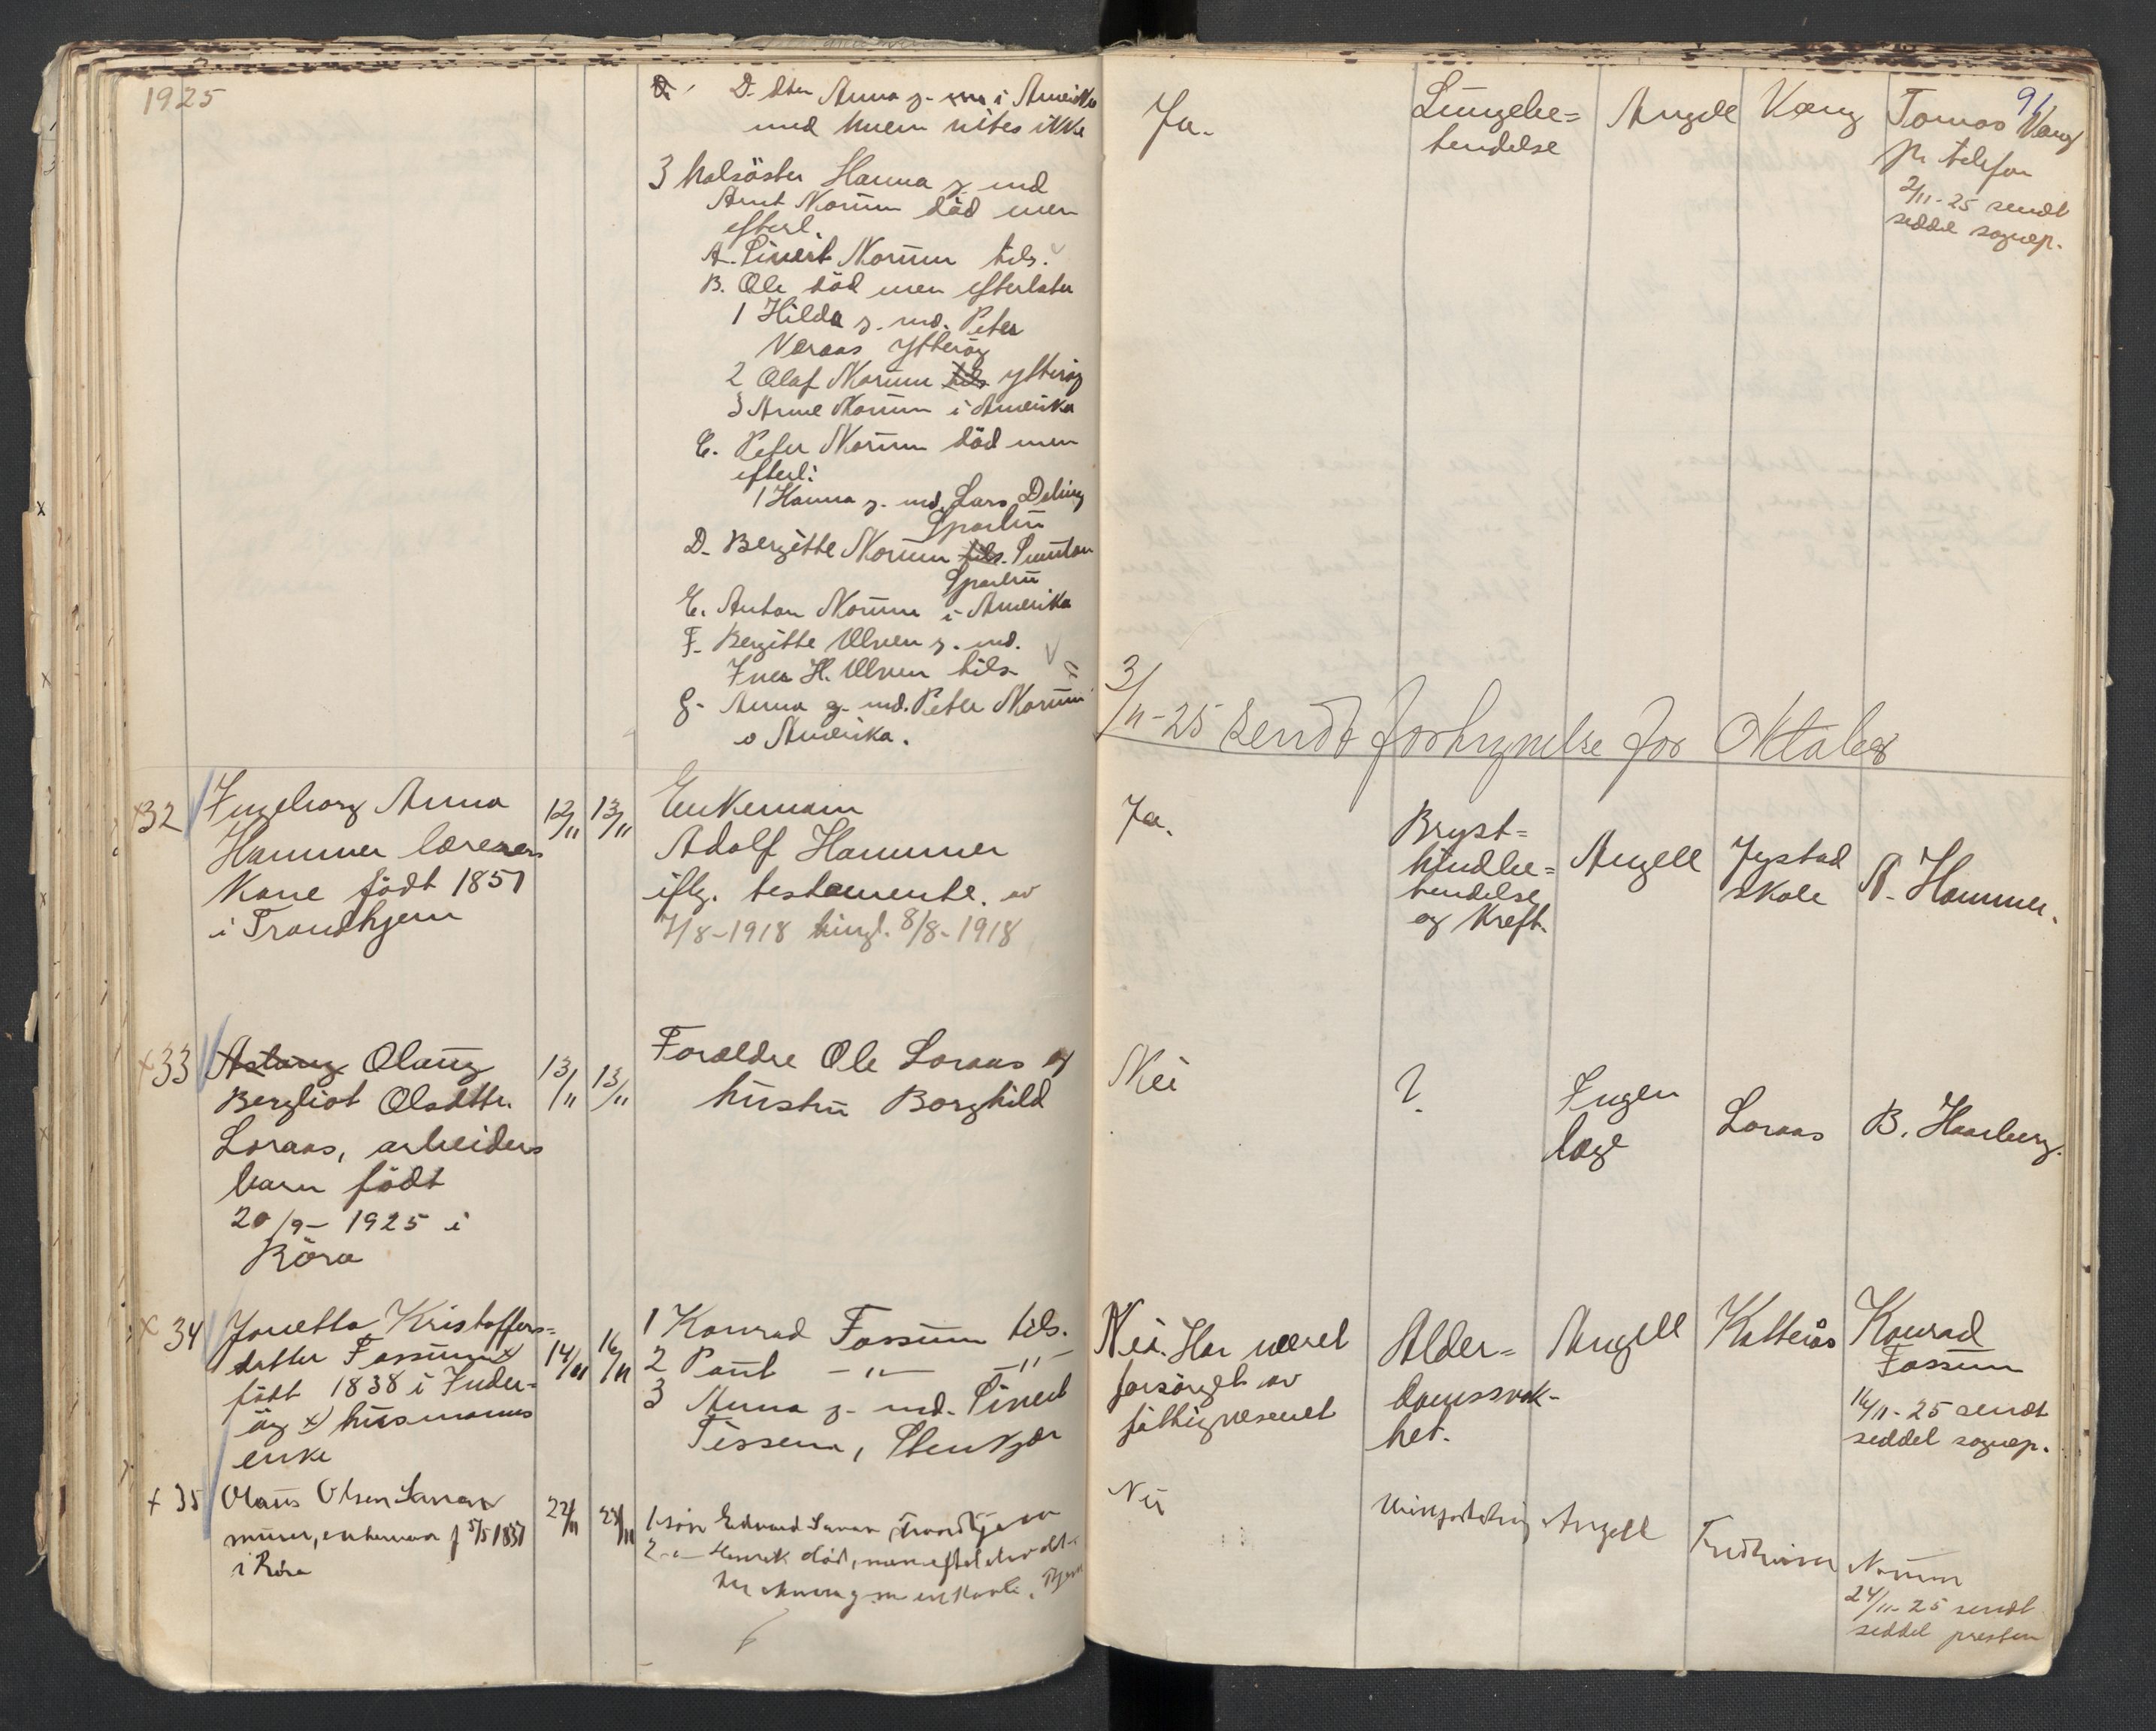 1925
D. dtr Anna g. i Amerika
med hvem vites ikke
3 halsöster Hanna g. md
Arnt Norum död men
efterl.
A. Sivert Norum tils.
B. Ole död men efterlater
1 Hilda g. md. Peter
Varaas Ytteröy
2 Olaf Norum tils Ytteröy
3 Arne Norum i Amerika
C. Peter Norum död men
efterl:
1 Hanna g. md. Lars Daling
Sparbu
D. Bergitte Norum tils.
Sparbu
E. Anton Norum i Amerika
F. Bergitte Ulven g. md.
Iver H. Ulven tils
G. Anna g. md. Peter Norum
o Amerika.
Ja.
Lungebe=
tendelse
Angell
Vang
91
Tomas Vang
pr. telefon
2/11-25 sendt
seddel sognep.
3/11-25 sendt fortegnelse for Oktober
x32
Ingeborg Anna
Hammer lærers
Kone födt 1851
i Trondhjem
12/11
13/11
Enkemann
Adolf Hammer
iflg. testamente. av
7/8-1918 tingl. 8/8-1918
Ja.
Bryst=
hindebe=
tendelse
og Kreft.
Angell
Jystad
skole
A. Hammer.
x33
Aslaug Olaug
Bergliot Olsdttr.
Loraas, arbeiders
barn födt
20/9-1925 i
Röra
13/11
13/11
Forældre Ole Loraas og
hustru Borghild
Nei
?
Ingen
læge
Loraas
B. Haarberg.
x 34
Jonetta Kristoffers=
datter Fossum x)
födt 1838 i Inder-
öy x) husmanns
enke
14/11
16/11
1 Konrad Fossum tils.
2 Paul -"- -"-
3 Anna g. md. Sivert
Tessem, Stenkjær
Nei. Har været
forsörget av
fattigvæsenet
Alder=
domssvak-
het.
Angell
Katterås
Konrad
Fossum
16/11-25 sendt
seddel sognep.
+ 35
Olaus Olsen
murer, enkemann f 5/5 1837
i Röra
22/11
24/11
1 sön Edvard Trondhjem
2 -"- Henrik död, men efterl
Nei
Angell
Norum
24/11-25 sendt
seddel presten